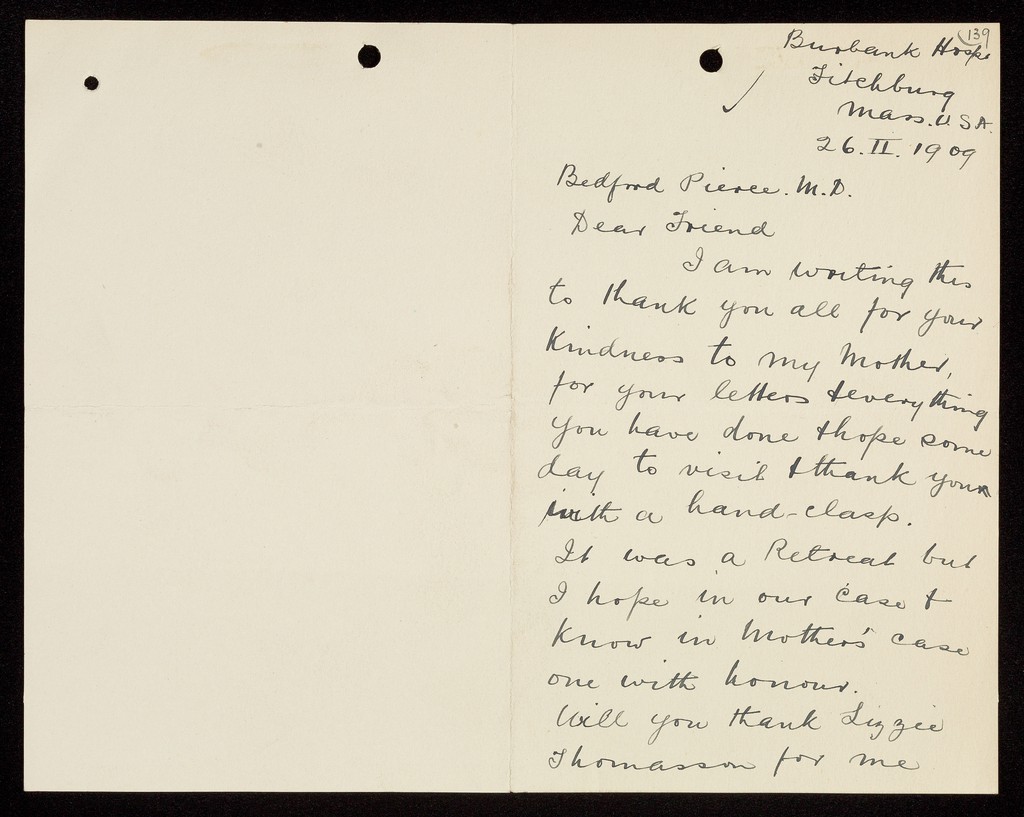 139
Burbank Hosp
Fitchburg
Mass. U.S.A.
26. II. 1909
Bedford Pierce. M.D.
Dear Friend
I am writing this
to thank you all for your
kindness to my Mother,
for your letters & everything
you have done & hope some
day to visit & thank you
with a hand-clasp.
It was a Retreat but
I hope in our case &
know in Mother's case
one with honour.
Will you thank Lizzie
Thomasson for me